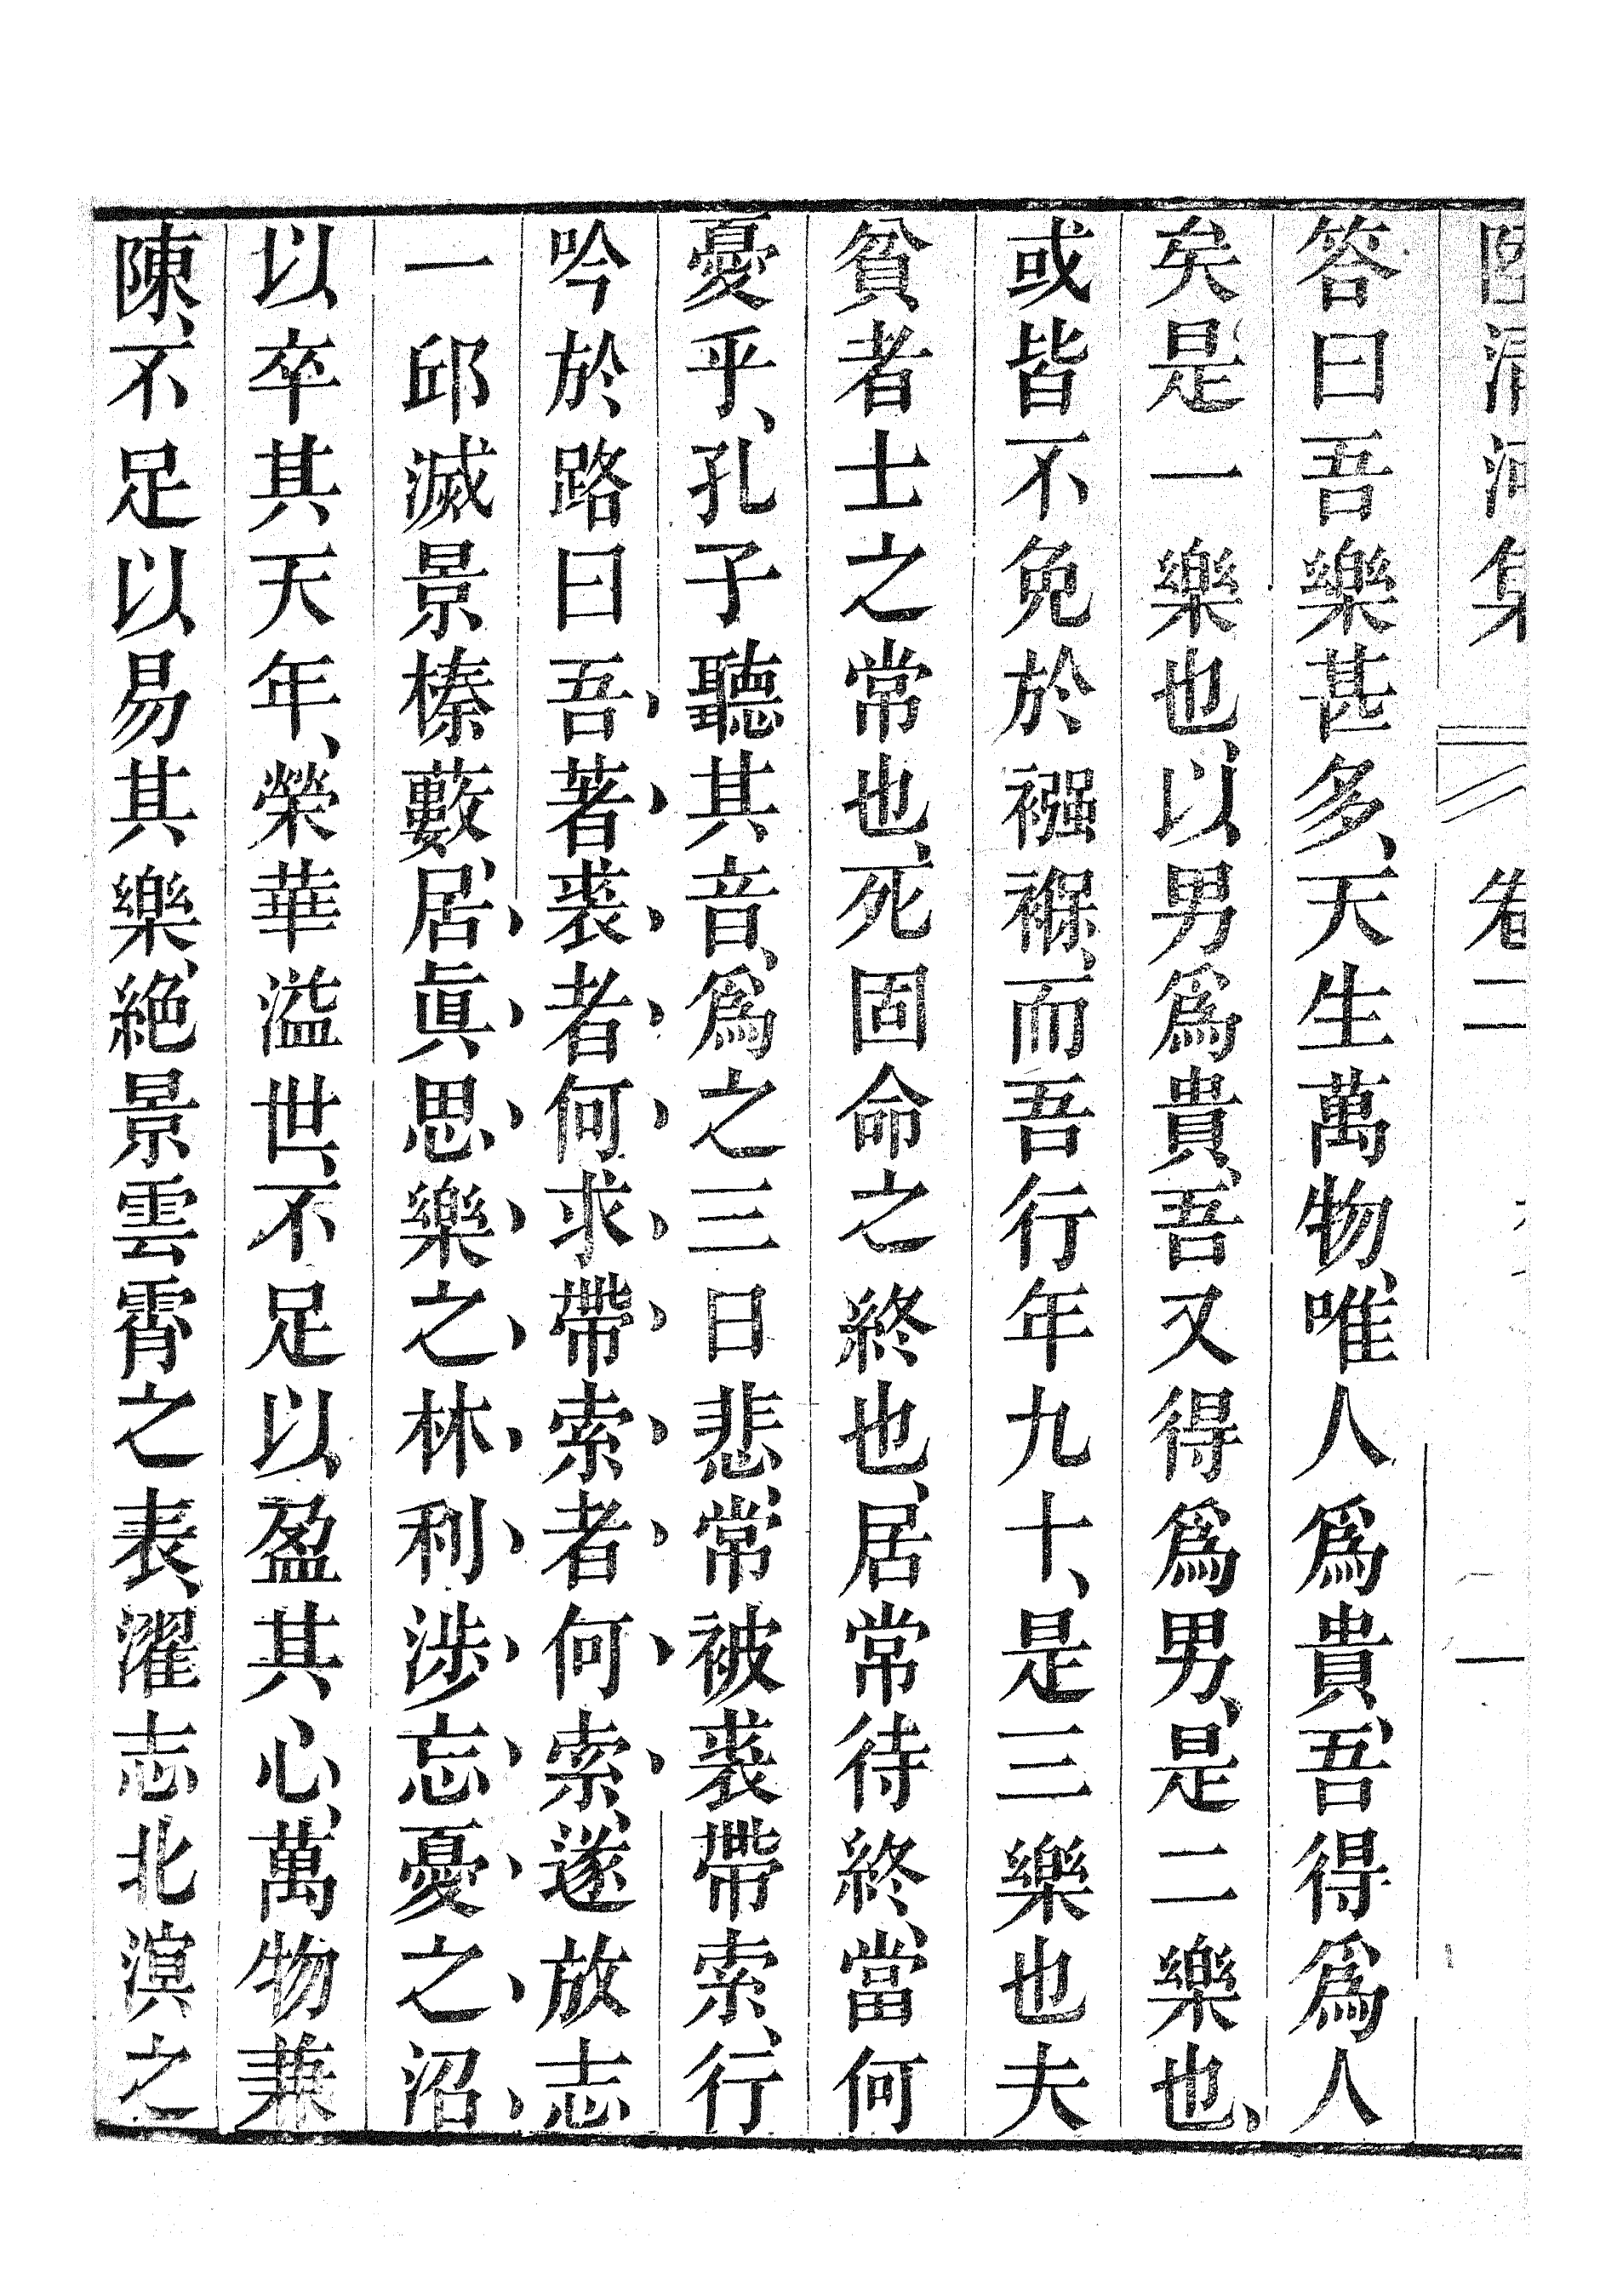 清河集 卷二 一
答曰吾樂甚多、天生萬物、唯人爲貴、吾得爲人
矣是一樂也、以男爲貴、吾又得爲男、是二樂也、
或皆不免於襁褓、而吾行年九十、是三樂也夫
貧者士之常也、死固命之終也、居常待終、當何
憂乎、孔子聽其音、爲之三日悲、常被裘帶索、行
吟於路曰吾著裘者何求帶索者何索、遂放志
一邱滅景榛藪、居眞思樂之林利涉忘憂之沼
以卒其天年、榮華溢世、不足以盈其心、萬物兼
陳、不足以易其樂、絶景雲霄之表、濯志北溟之